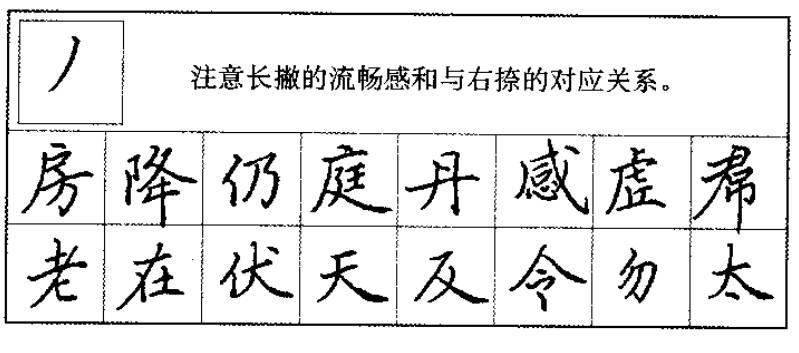 丿 注意长撇的流畅感和与右捺的对应关系。
房降仍庭丹感虚帬
老在伏天反令勿太